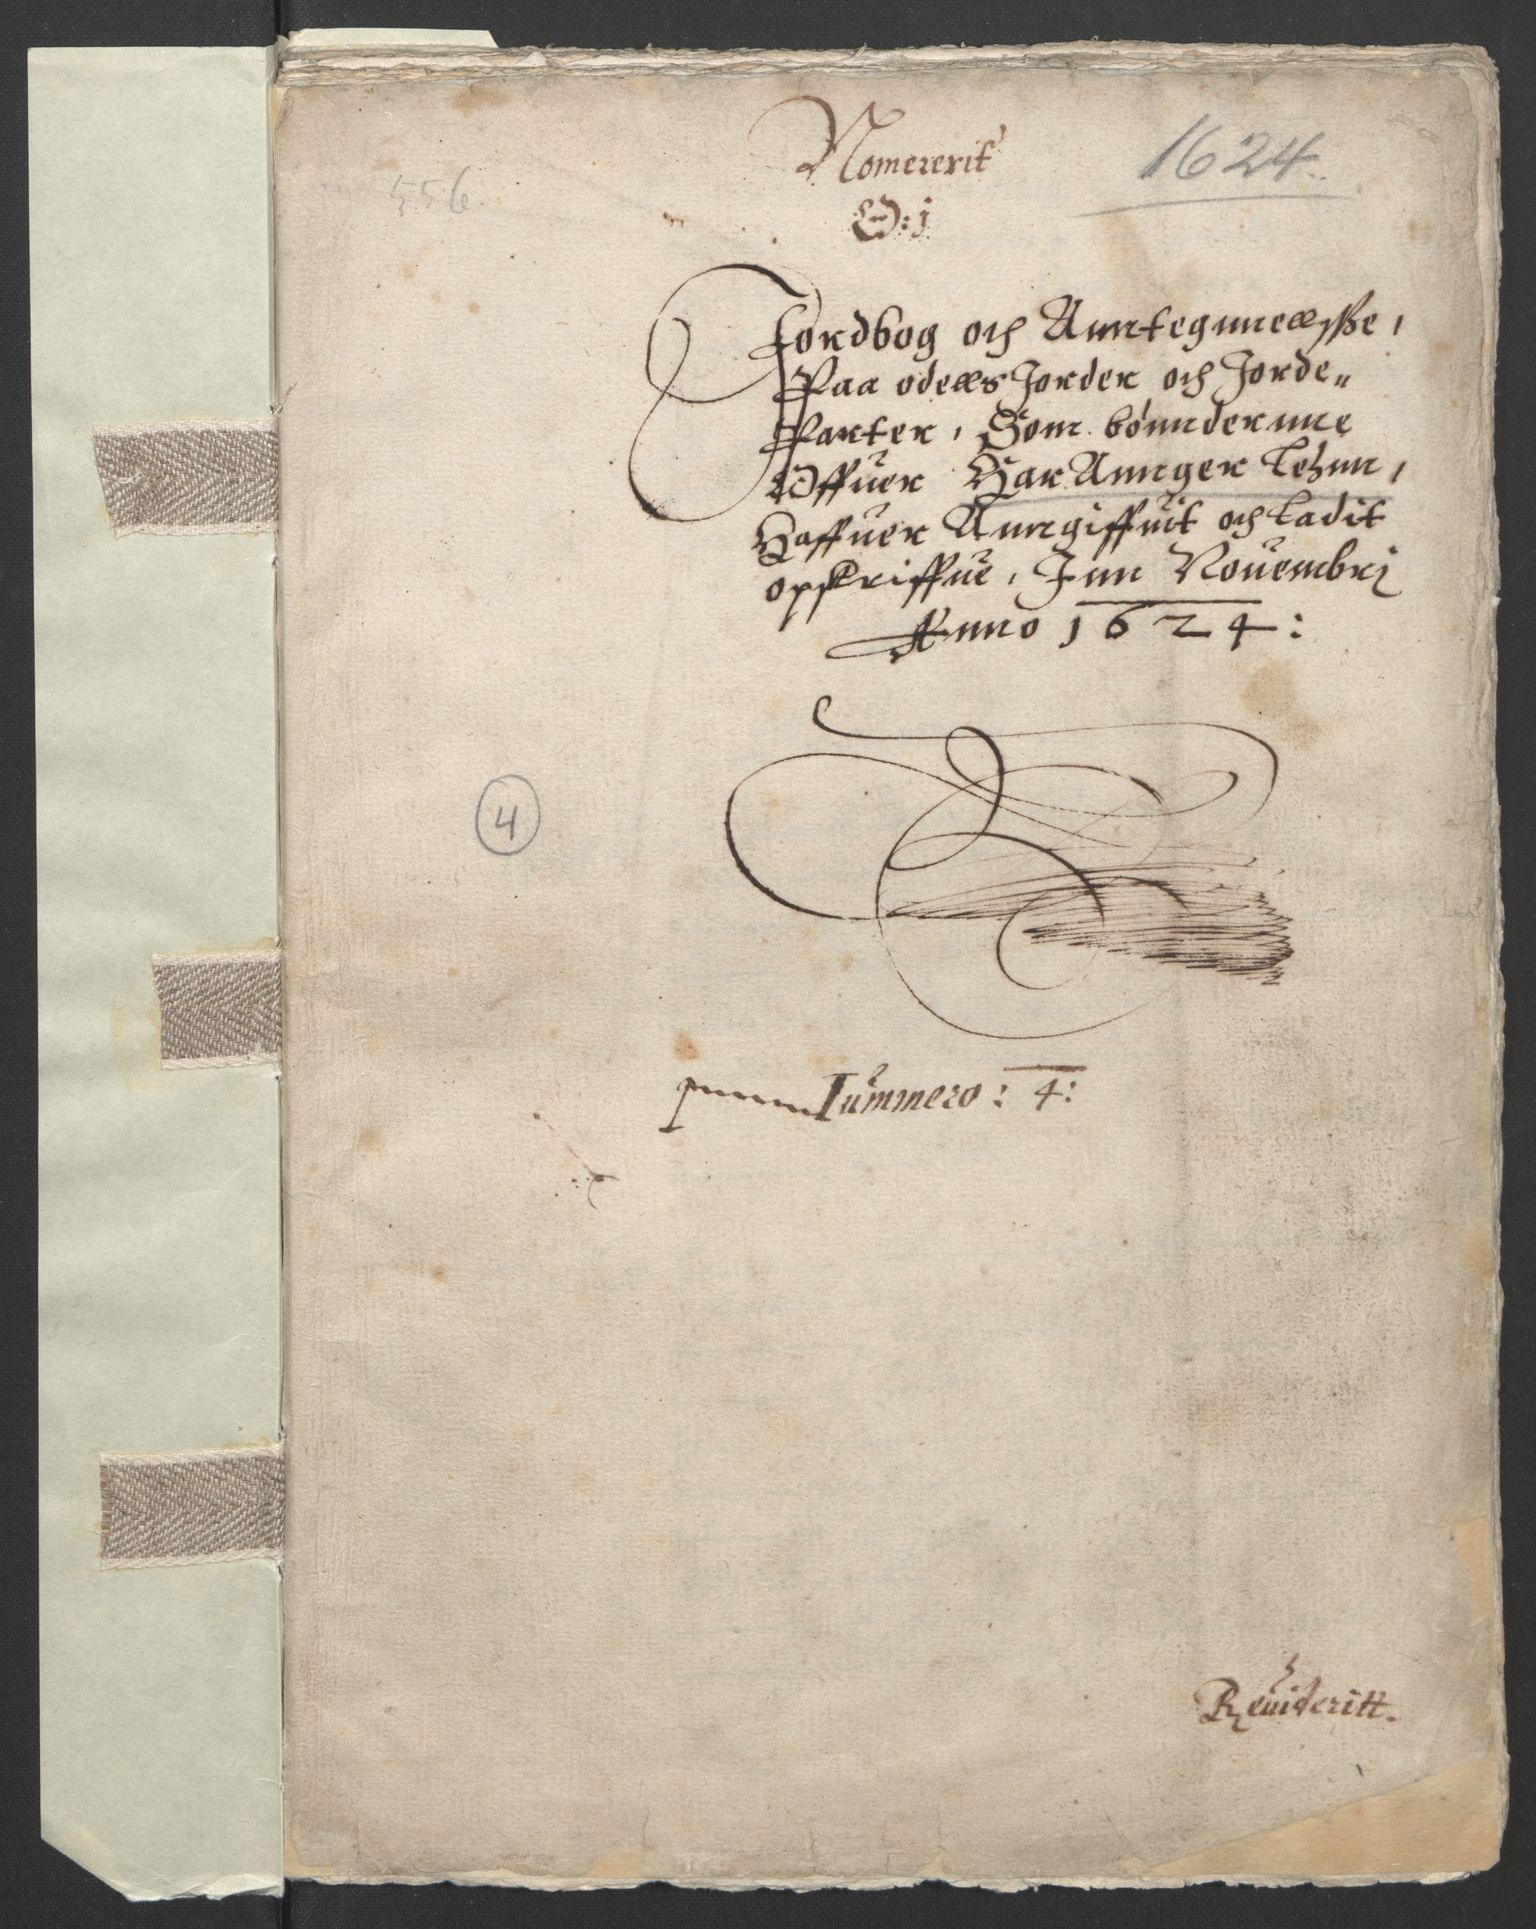 Nomererit
1624.
556.
E: j
Jordbog och Anntegnnellsse,
Paa odells Jorder och Jorde„
Parter, Som bønnderne
Offuer Hardannger Lehnn,
Haffuer Anngiffuit och Ladit
opskriffue, Inn Nouembrj
Anno 1624:
4
Nummero: 4:
Reuideritt.